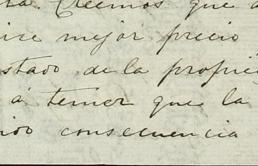 ta. Creemos que a
ise mejor precio
stado de la propie
á temer que la
ido consecuencia